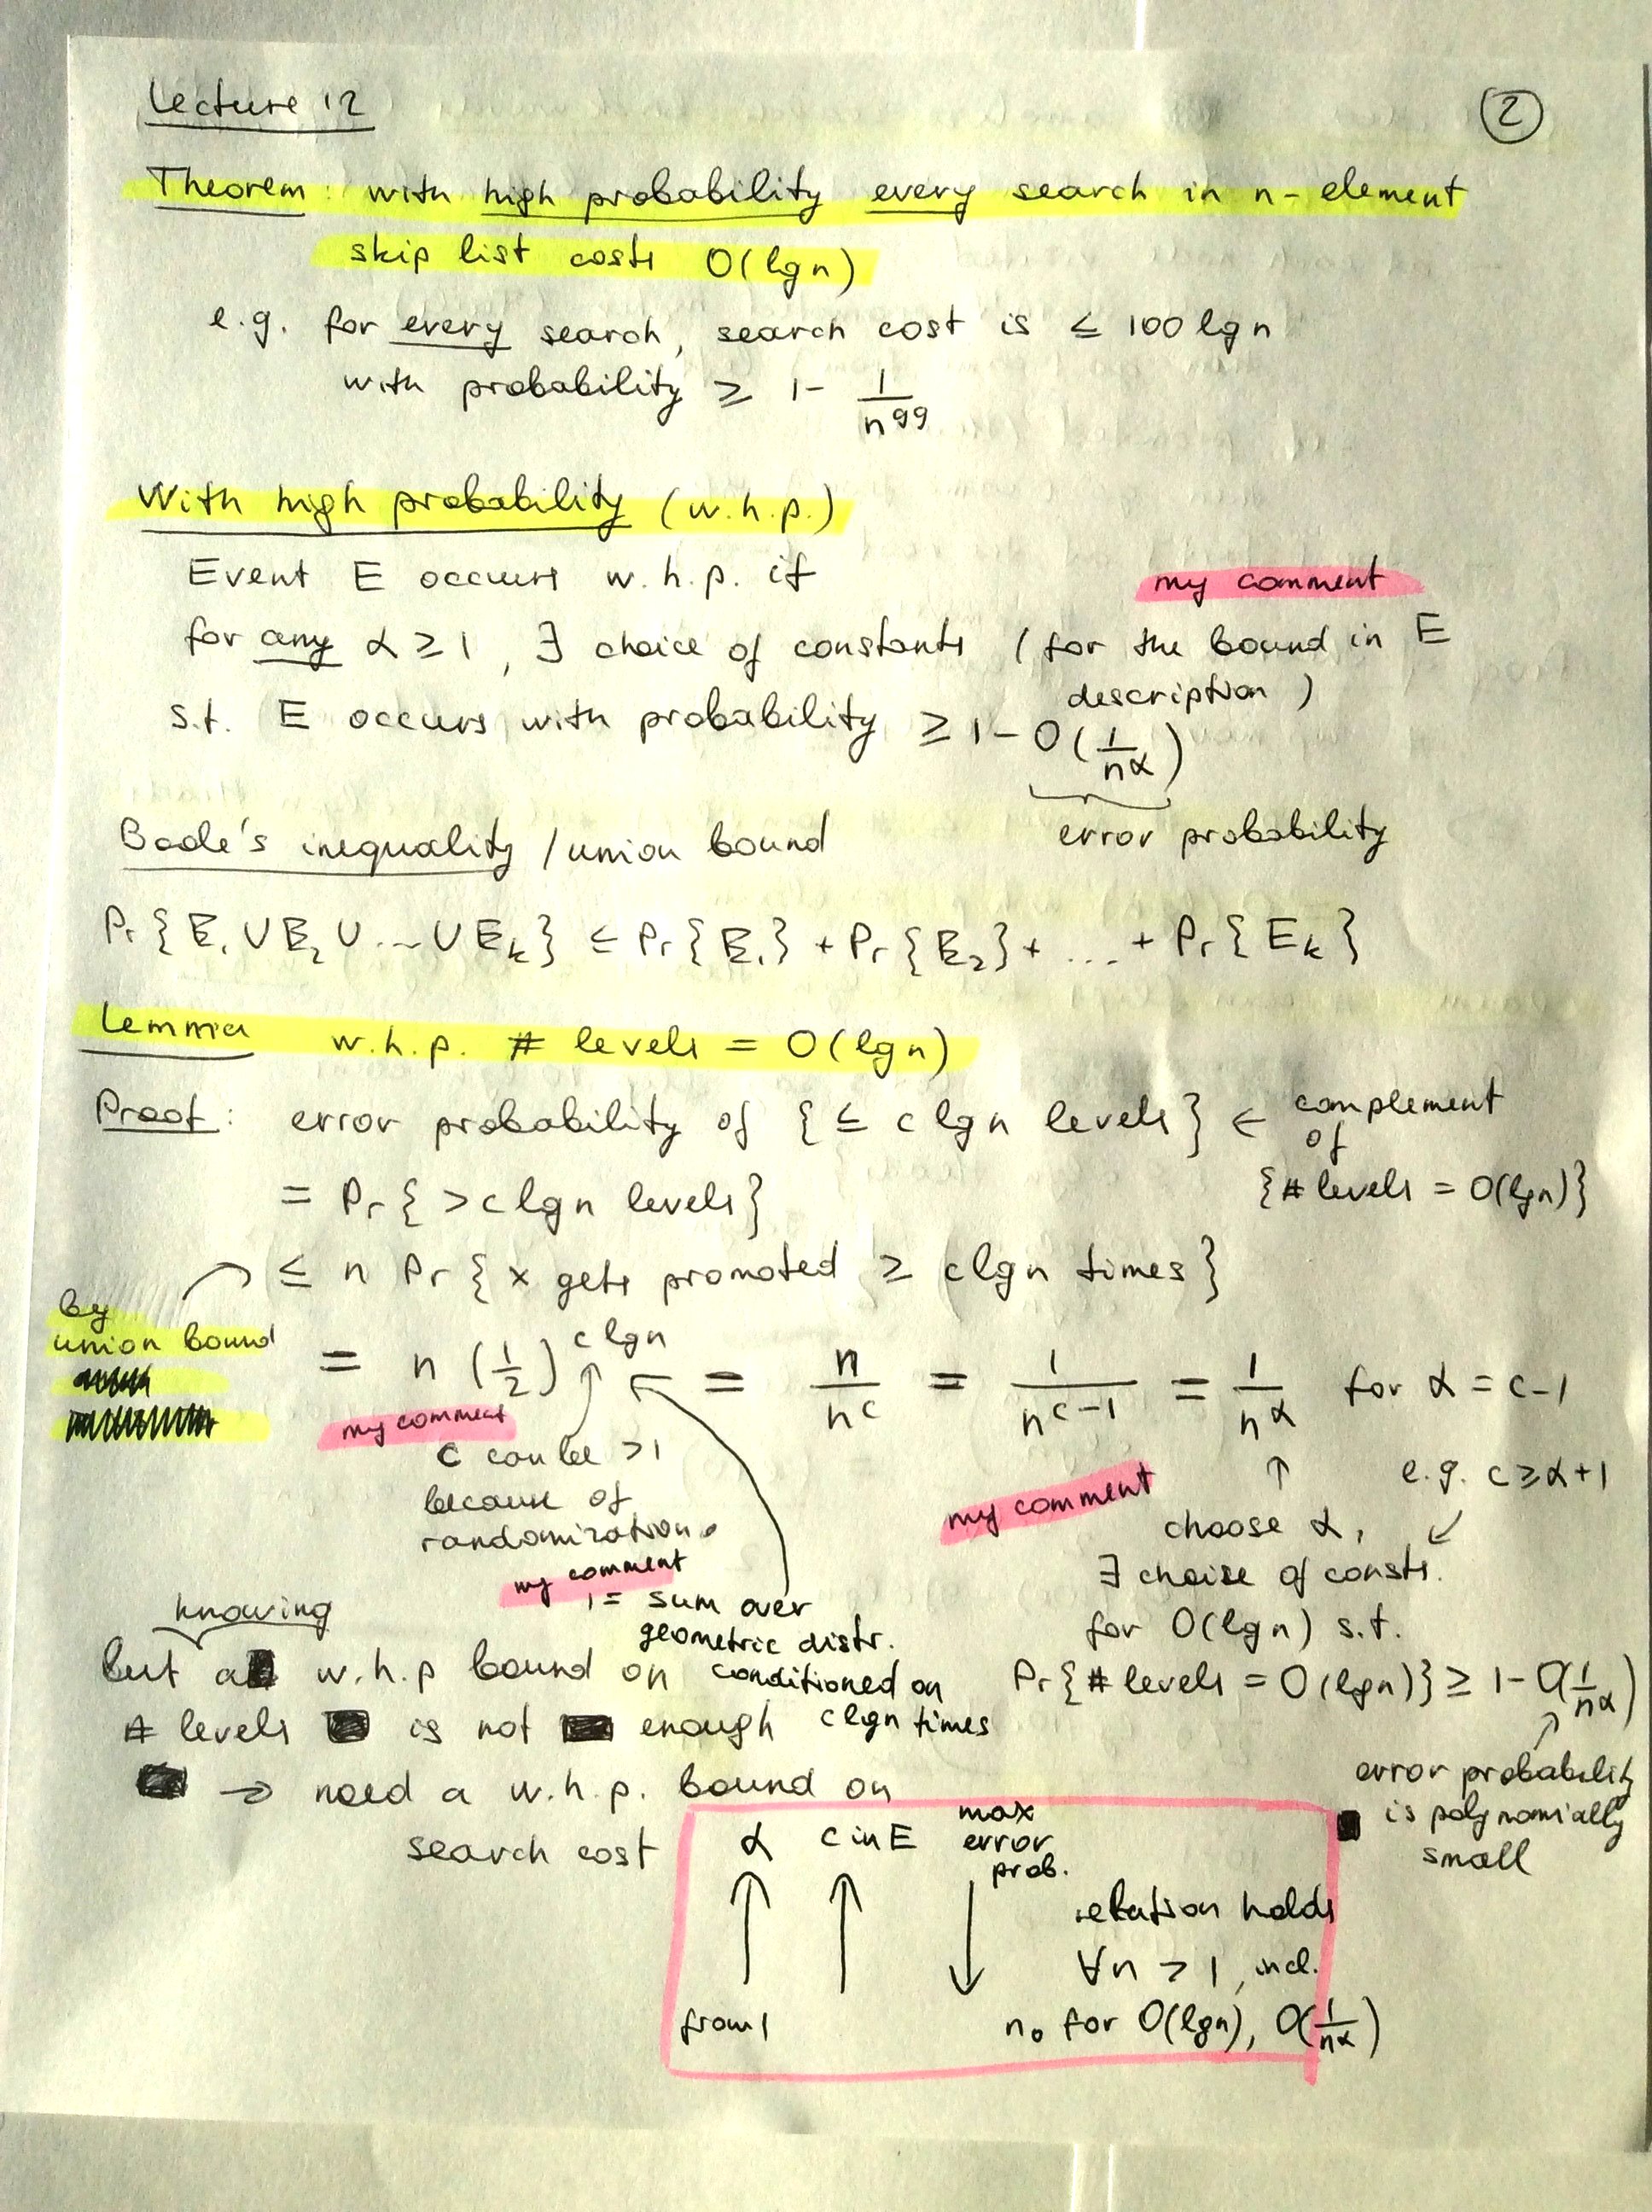 Lecture 12
2
Theorem: with high probability every search in n-element
skip list costs O(lg n)
e.g. for every search, search cost is ≤ 100 lg n
with probability ≥ 1 - 1/n^99
With high probability (w.h.p.)
Event E occurs w.h.p. if
my comment
for any α ≥ 1, ∃ choice of constants (for the bound in E
description)
s.t. E occurs with probability ≥ 1 - O(1/n^α)
error probability
Boole's inequality / union bound
Pr{E₁ ∪ E₂ ∪ ... ∪ E_k} ≤ Pr{E₁} + Pr{E₂} + ... + Pr{E_k}
Lemma w.h.p. # levels = O(lg n)
Proof: error probability of {≤ c lg n levels} ← complement
of
{# levels = O(lg n)}
= Pr{> c lg n levels}
≤ n Pr{x gets promoted ≥ c lg n times}
by
union bound
= n (1/2)^(c lg n) = n/n^c = 1/n^(c-1) = 1/n^α for α = c-1
my comment
c can be > 1
because of
randomization
my comment
= sum over
geometric distr.
conditioned on
c lg n times
e.g. c ≥ α+1
my comment
choose α,
∃ choise of consts.
for O(lg n) s.t.
Pr{# levels = O(lg n)} ≥ 1 - O(1/n^α)
error probability
is polynomially
small
knowing
but a w.h.p bound on
# levels is not enough
→ need a w.h.p. bound on
search cost
α c in E max
error
prob.
↑ ↑ ↓
relation holds
∀n > 1, incl.
from 1
n₀ for O(lg n), O(1/n^α)